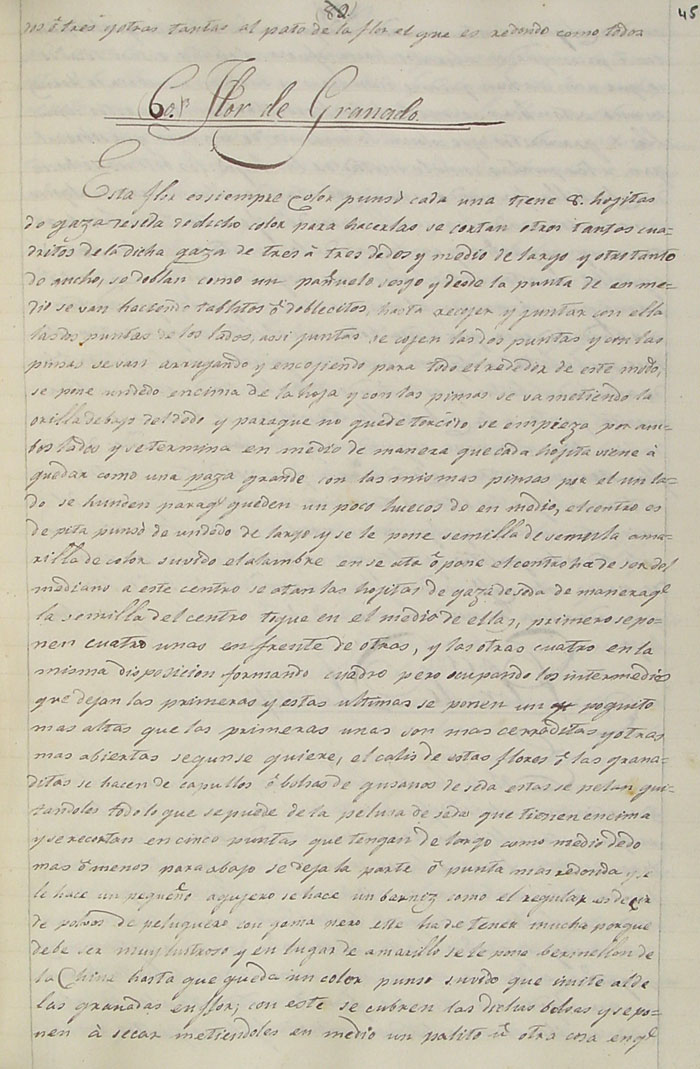 45
dos ó tres y otras tantas al pato de la flor el que es redondo como todos
60.ª Flor de Granado.
Esta flor es siempre Color punsó cada una tiene 8. hojitas
de gaza de seda de dicho color para hacerlas se cortan otros tantos cua=
dritos de la dicha gaza de tres á tres dedos y medio de largo y otro tanto
de ancho, se doblan como un pañuelo sesgo y desde la punta de en me=
dio se van haziendo tablitos ó doblecitos, hasta recojer y juntar con ella
las dos puntas de los lados, assi juntas se cojen las dos puntas y con las
pinsas se van arrugando y encojiendo para todo el rededor de este modo,
se pone un dedo encima de la hoja y con las pinsas se va metiendo la
orilla debajo del dedo y para que no quede torcido se empieza por am=
bos lados y se termina en medio de manera que cada hojita viene á
quedar como una paza grande con las mismas pinsas por el un la=
do se hunden paraqᵉ queden un poco huecos de en medio, el centro es
de pita punsó de un dedo de largo y se le pone semilla de semola ama=
rilla de color suvido el alambre en se ata ó pone el centro ha de ser del
mediano a este centro se atan las hojitas de gaza de seda de maneraqᵉ
la semilla del centro toque en el medio de ellas, primero se po=
nen cuatro unas en frente de otras, y las otras cuatro en la
misma disposicion formando cuadro pero ocupando los intermedios
que dejan las primeras y estas ultimas se ponen un poquito
mas altas que las primeras unas son mas cerraditas y otras
mas abiertas segun se quiere, el calis de estas flores ó las grana=
ditas se hacen de capullos ó bolsas de gusanos de seda estas se pelan qui=
tandoles todo lo que se puede de la pelusa de seda que tienen encima
y se recortan en cinco puntas que tengan de largo como medio dedo
mas ó menos para abajo se deja la parte ó punta mas redonda y se
le hace un pequeño agujero se hace un barniz como el regular es decir
de polvos de peluquero con goma pero este ha de tener mucha porque
debe ser muy lustroso y en lugar de amarillo se le pone bermellon de
la China hasta que queda un color punso suvido que imite al de
las granadas en flor; con este se cubren las dichas bolsas y se po=
nen à secar metiendoles en medio un palito ú otra cosa enqᵉ